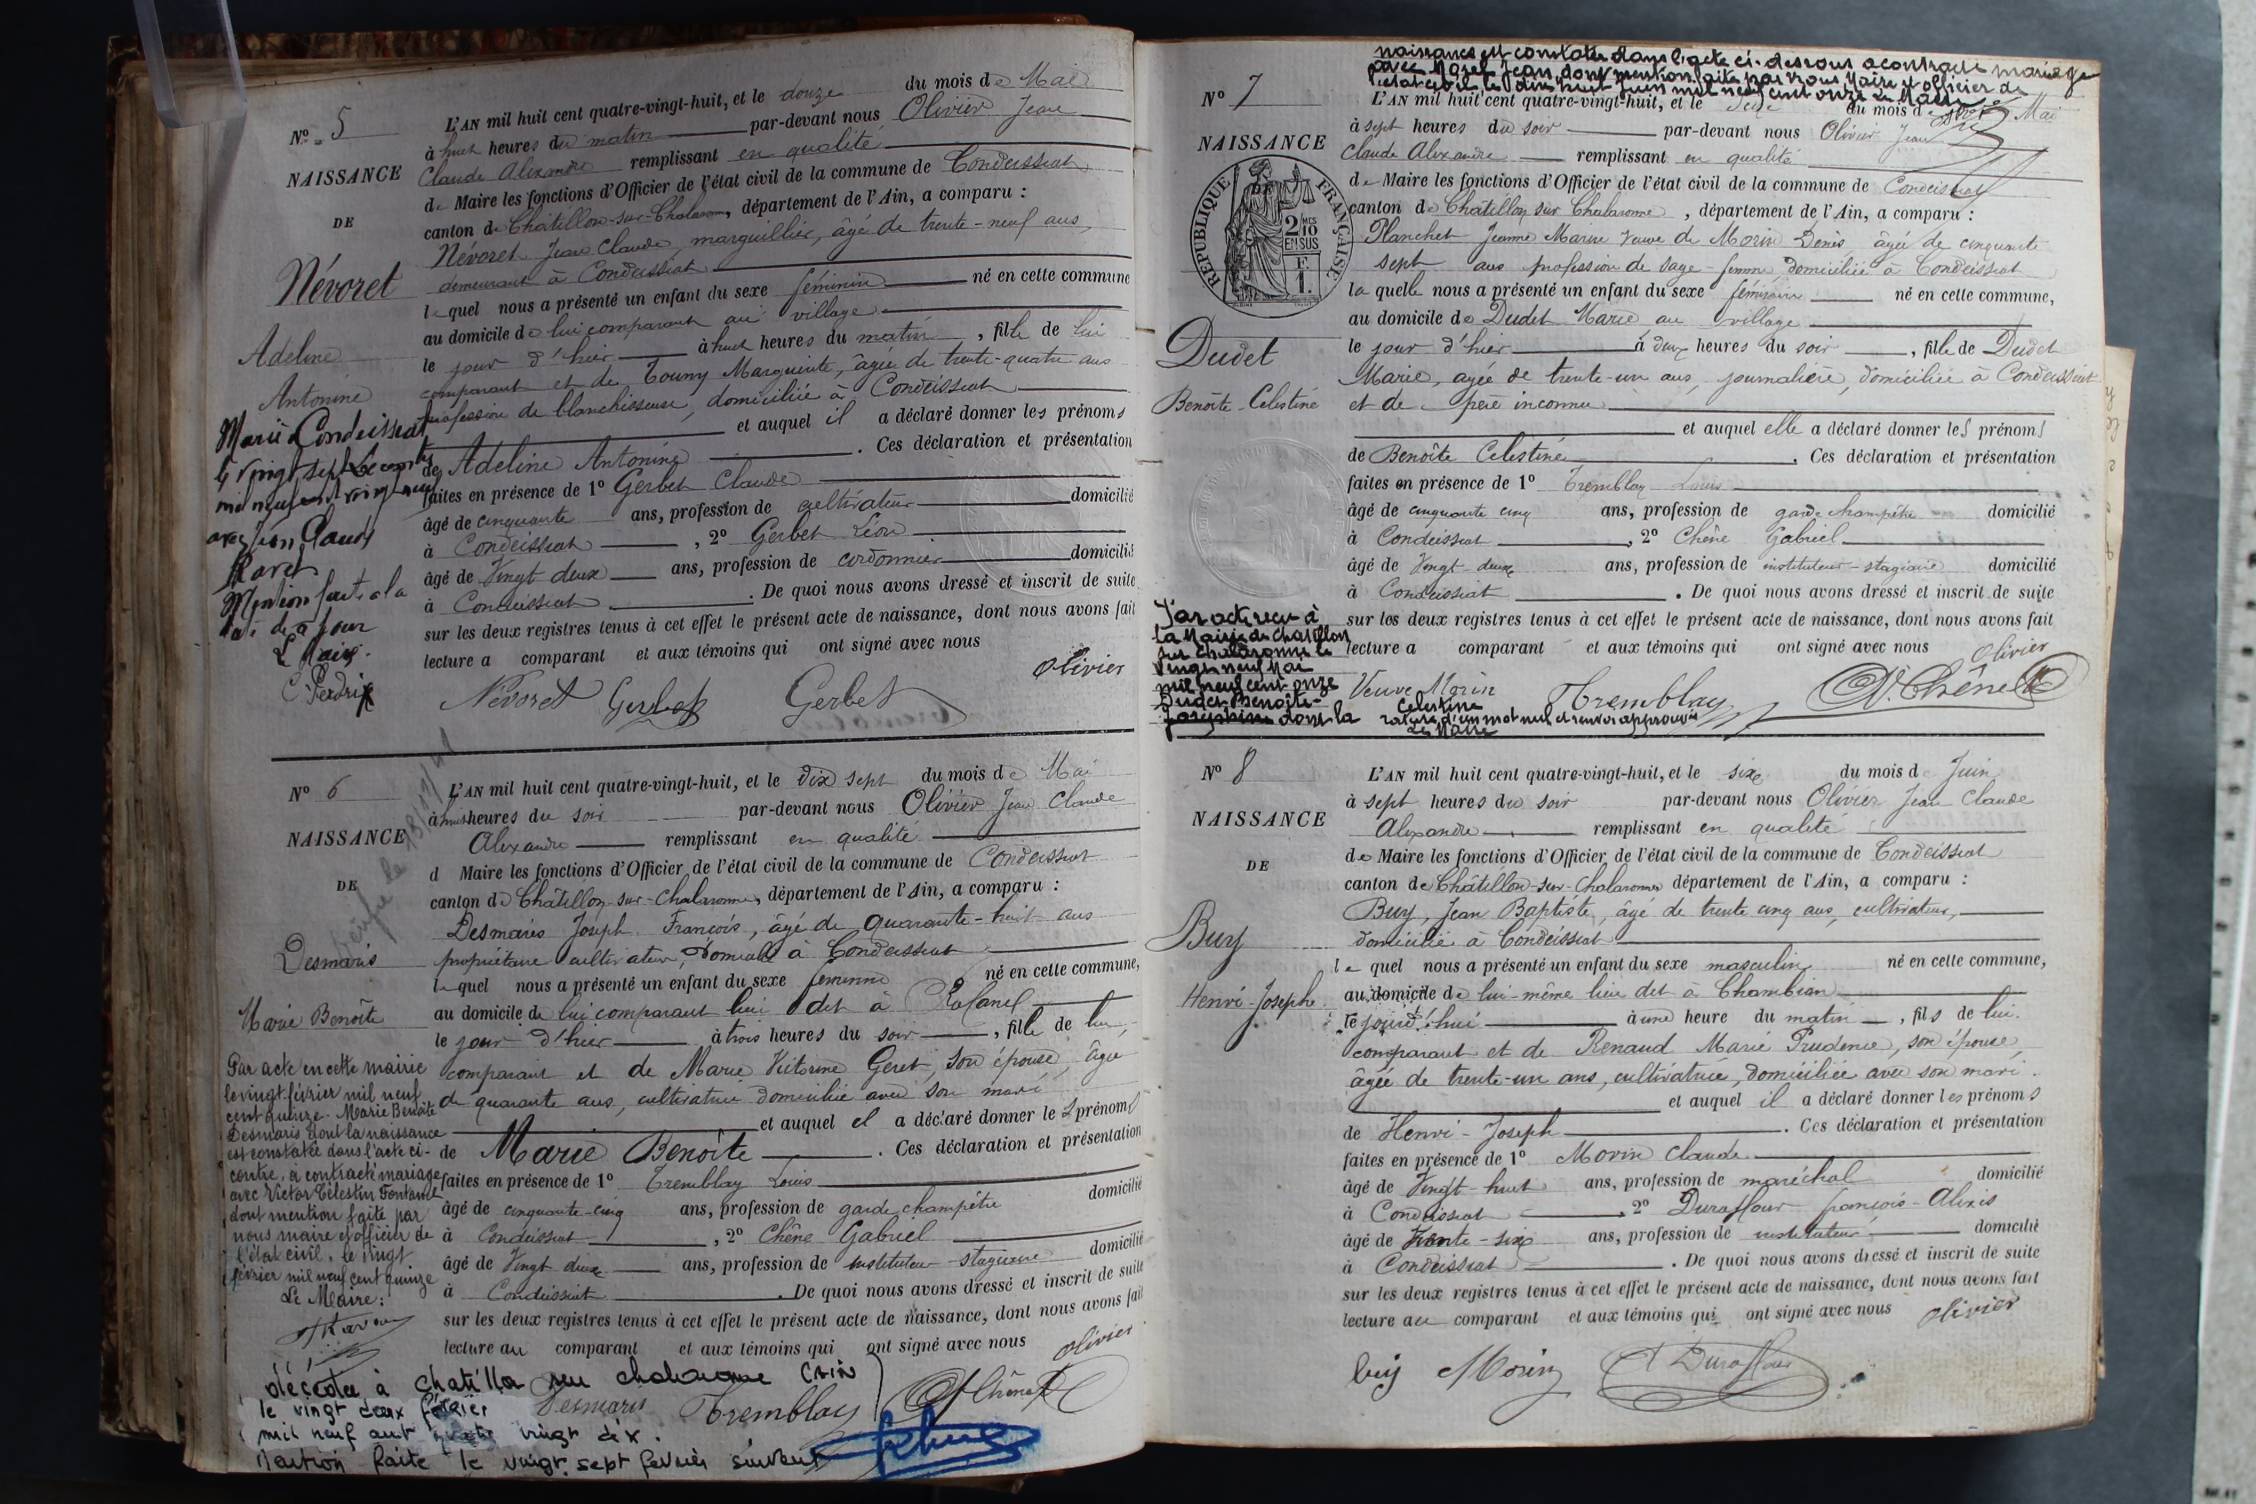 N° 5
NAISSANCE
DE
Névoret
Adeline
Antonine
Marié à Condeissiat
le vingt sept
mil neuf cent vingt neuf
avec Jean Claude
Ravet
Mention faite à la
date de ce jour
Le Maire
C. Perdrix
L'AN mil huit cent quatre-vingt-huit, et le douze du mois de Mai
à huit heures du matin par-devant nous Olivier Jean
Claude Alexandre remplissant en qualité
de Maire les fonctions d'Officier de l'état civil de la commune de Condeissiat
canton de Châtillon-sur-Chalaronne, département de l'Ain, a comparu :
Névoret Jean Claude, marguillier, âgé de trente-neuf ans,
demeurant à Condeissiat
lequel nous a présenté un enfant du sexe féminin né en cette commune
au domicile de lui comparant au village
le jour d'hier à huit heures du matin, fille de lui
comparant et de Touny Marguerite, âgée de trente-quatre ans
profession de blanchisseuse, domiciliée à Condeissiat
et auquel il a déclaré donner les prénoms
de Adeline Antonine. Ces déclaration et présentation
faites en présence de 1° Gerbet Claude
âgé de cinquante ans, profession de cultivateur domicilié
à Condeissiat, 2° Gerbet Léon
âgé de Vingt deux ans, profession de cordonnier domicilié
à Condeissiat. De quoi nous avons dressé et inscrit de suite
sur les deux registres tenus à cet effet le présent acte de naissance, dont nous avons fait
lecture a comparant et aux témoins qui ont signé avec nous
Olivier
Névoret Gerbet Gerbet
N° 6
NAISSANCE
DE
Desmaris
Marie Benoîte
Par acte en cette mairie
le vingt février mil neuf
cent quinze. Marie Benoîte
Desmaris dont la naissance
est constatée dans l'acte ci-
contre, a contracté mariage
avec Victor Célestin Fontaine
dont mention faite par
nous maire et officier de
l'état civil, le vingt
février mil neuf cent quinze
Le Maire:
L'AN mil huit cent quatre-vingt-huit, et le dix sept du mois de Mai
à huit heures du soir par-devant nous Olivier Jean Claude
Alexandre remplissant en qualité
d Maire les fonctions d'Officier de l'état civil de la commune de Condeissiat
canton de Châtillon-sur-Chalaronne, département de l'Ain, a comparu :
Desmaris Joseph François, âgé de quarante-huit ans
propriétaire cultivateur, domicilié à Condeissiat
lequel nous a présenté un enfant du sexe féminin né en cette commune,
au domicile de lui comparant lieu dit à Rafanel
le jour d'hier à trois heures du soir, fille de lui,
comparant et de Marie Victorine Geret son épouse, âgée
de quarante ans, cultivatrice domiciliée avec son mari
et auquel il a déclaré donner les prénoms
de Marie Benoîte. Ces déclaration et présentation
faites en présence de 1° Tremblay Louis
âgé de cinquante-cinq ans, profession de garde champêtre domicilié
à Condeissiat, 2° Chêne Gabriel
âgé de Vingt deux ans, profession de instituteur-stagiaire domicilié
à Condeissiat. De quoi nous avons dressé et inscrit de suite
sur les deux registres tenus à cet effet le présent acte de naissance, dont nous avons fait
lecture au comparant et aux témoins qui ont signé avec nous
Olivier
Desmaris Tremblay Chêne
décédée à Chatillon sur Chalaronne (Ain)
le vingt deux février
mil neuf cent quatre vingt dix.
Mention faite le vingt sept février suivant
naissance est constatée dans l'acte ci-dessous a contracté mariage
avec Morel Jean, dont mention faite par nous Maire et officier de
l'état civil le dix huit Juin mil neuf cent onze Le Maire
N° 7
NAISSANCE
RÉPUBLIQUE FRANÇAISE
2/10
EN SUS
F.
1.
Dudet
Benoîte Celestine
Par acte reçu à
la Mairie de Chatillon
sur Chalaronne le
vingt neuf Mai
mil neuf cent onze
Dudet Benoîte-
Joséphine dont la
Celestine
rature d'un mot nul et renvoi approuvés
Le Maire
L'AN mil huit cent quatre-vingt-huit, et le du mois de Mai
à sept heures du soir par-devant nous Olivier Jean
Claude Alexandre remplissant en qualité
de Maire les fonctions d'Officier de l'état civil de la commune de Condeissiat
canton de Châtillon sur Chalaronne, département de l'Ain, a comparu :
Planchet Jeanne Marie Veuve de Morin Denis âgée de cinquante
sept ans profession de sage-femme domiciliée à Condeissiat
laquelle nous a présenté un enfant du sexe féminin né en cette commune,
au domicile de Dudet Marie au village
le jour d'hier à deux heures du soir, fille de Dudet
Marie, âgée de trente-un ans, journalière, domiciliée à Condeissiat
et de père inconnu
et auquel elle a déclaré donner les prénoms
de Benoîte Celestine. Ces déclaration et présentation
faites en présence de 1° Tremblay Louis
âgé de cinquante cinq ans, profession de garde champêtre domicilié
à Condeissiat, 2° Chêne Gabriel
âgé de Vingt-deux ans, profession de instituteur-stagiaire domicilié
à Condeissiat. De quoi nous avons dressé et inscrit de suite
sur les deux registres tenus à cet effet le présent acte de naissance, dont nous avons fait
lecture a comparant et aux témoins qui ont signé avec nous
Olivier
Veuve Morin Tremblay Chêne
N° 8
NAISSANCE
DE
Buy
Henri-Joseph
L'AN mil huit cent quatre-vingt-huit, et le six du mois d Juin
à sept heures du soir par-devant nous Olivier Jean Claude
Alexandre remplissant en qualité
de Maire les fonctions d'Officier de l'état civil de la commune de Condeissiat
canton de Châtillon-sur-Chalaronne département de l'Ain, a comparu :
Buy, Jean Baptiste, âgé de trente cinq ans, cultivateur,
domicilié à Condeissiat
lequel nous a présenté un enfant du sexe masculin né en cette commune,
au domicile de lui-même lieu dit à Chambian
le jourd'hui à une heure du matin, fils de lui
comparant et de Renaud Marie Prudence, son épouse,
âgée de trente-un ans, cultivatrice, domiciliée avec son mari.
et auquel il a déclaré donner les prénoms
de Henri-Joseph. Ces déclaration et présentation
faites en présence de 1° Morin Claude
âgé de Vingt-huit ans, profession de maréchal domicilié
à Condeissiat, 2° Duraffour françois-Alexis
âgé de Trente-six ans, profession de instituteur domicilié
à Condeissiat. De quoi nous avons dressé et inscrit de suite
sur les deux registres tenus à cet effet le présent acte de naissance, dont nous avons fait
lecture au comparant et aux témoins qui ont signé avec nous
Olivier
buy Morin Duraffour